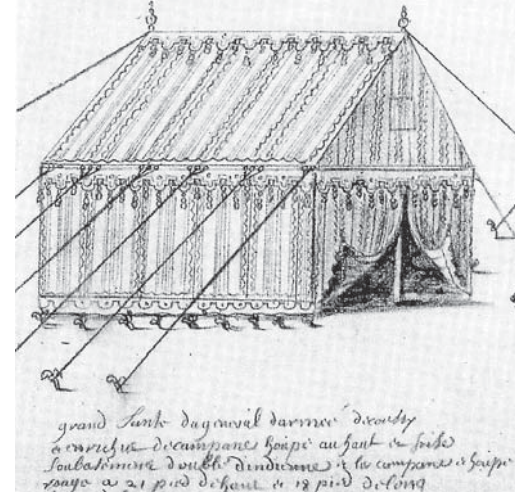 grand Tante dageneral darmeé decoutty
& enrichie decampane houpé au haut &
Soubatement double dindienne & les campane & houpe
rouge a 21 pied dehaut & 18 pied delong